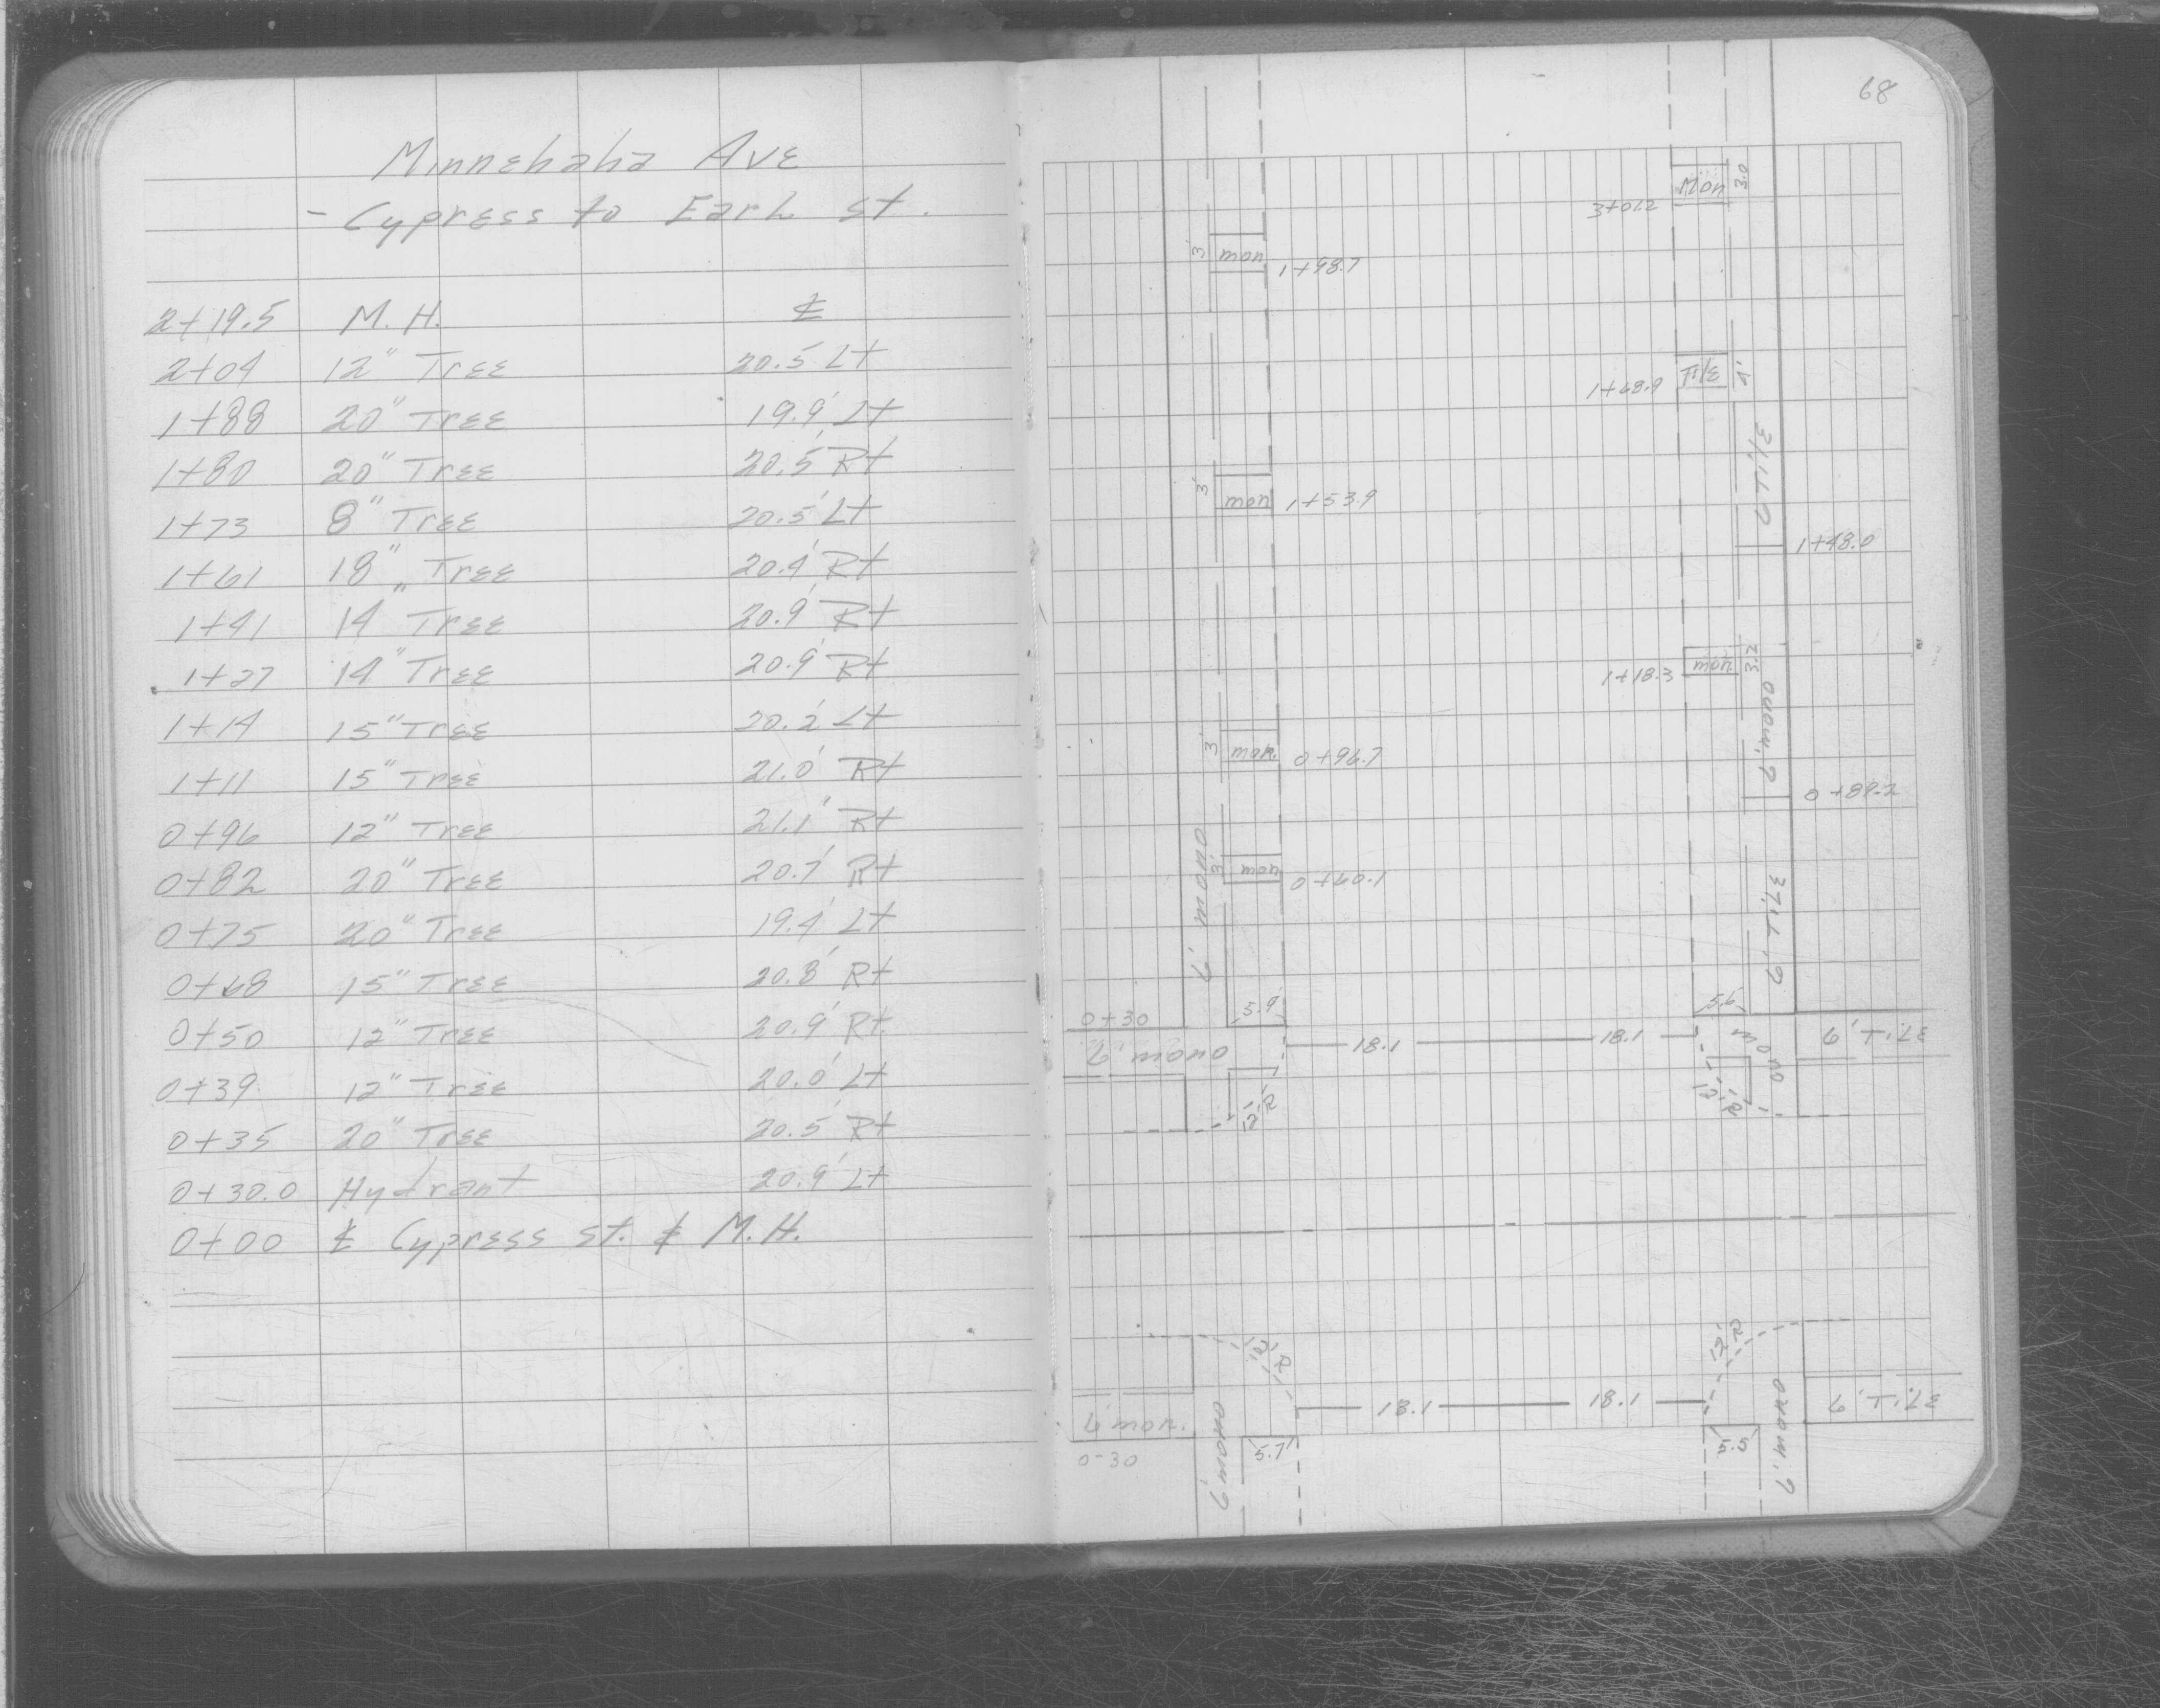 Minnehaha Ave
- Cypress to Earl St.
2+19.5 M.H. ℄
2+04 12" Tree 20.5' Lt
1+88 20" Tree 19.9' Lt
1+80 20" Tree 20.5' Rt
1+73 8" Tree 20.5' Lt
1+61 18" Tree 20.4' Rt
1+41 14" Tree 20.9' Rt
1+27 14" Tree 20.9' Rt
1+14 15" Tree 20.2' Lt
1+11 15" Tree 21.0' Rt
0+96 12" Tree 21.1' Rt
0+82 20" Tree 20.7' Rt
0+75 20" Tree 19.4' Lt
0+68 15" Tree 20.8' Rt
0+50 12" Tree 20.9' Rt
0+39 12" Tree 20.0' Lt
0+35 20" Tree 20.5' Rt
0+30.0 Hydrant 20.9' Lt
0+00 ℄ Cypress St. & M.H.
68
3+01.2 Mon 3.0
3' mon 1+98.7
1+68.9 Tile 4'
6' Tile
3' mon 1+53.9
1+48.0
1+18.3 mon 3.2
6' mono
3' mon. 0+96.7
0+89.2
3' mon 0+60.1
6' mono
6' Tile
0+30 5.9 5.6
6' mono 18.1 18.1 mono 6' Tile
12' R 12' R
12' R 12' R
6' mon. 18.1 18.1 6' Tile
0-30 6' mono 5.7 5.5 6' mono